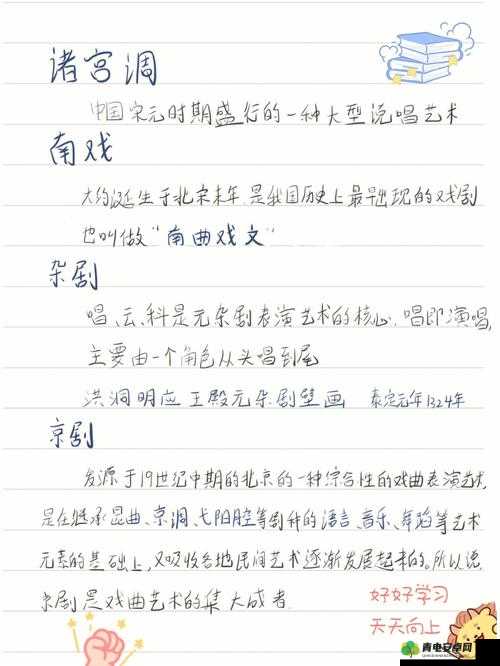 诸宫调
中国宋元时期盛行的一种大型说唱艺术
南戏
大约诞生于北宋末年,是我国历史上最早出现的戏剧
也叫做“南曲戏文”
杂剧
唱、云、科是元杂剧表演艺术的核心,唱即演唱,
主要由一个角色从头唱到尾
洪洞明应王殿元杂剧壁画 泰定元年1324年
京剧
发源于19世纪中期的北京的一种综合性的戏曲表演艺术,
是在继承昆曲、京调、弋阳腔等剧种的语言、音乐、舞蹈等艺术
元素的基础上,又吸收各地民间艺术逐渐发展起来的。所以说,
京剧是戏曲艺术的集大成者
好好学习
天天向上
青电安卓网